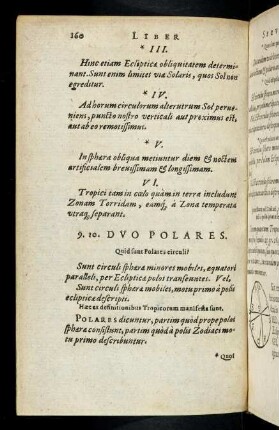 160 LIBER
* III.
Hinc etiam Eclipticæ obliquitatem determi-
nant. Sunt enim limites viæ Solaris, quos Sol non
egreditur.
* IV.
Ad horum circulorum alterutrum Sol perue-
niens, puncto nostro verticali aut proximus est,
aut ab eo remotissimus.
* V.
In sphæra obliqua metiuntur diem & noctem
artificialem breuissimam & longissimam.
VI.
Tropici tam in cælo quàm in terra includunt
Zonam Torridam, eamq́; à Zona temperata
vtraq; separant.
9. 10. DVO POLARES.
Quid sunt Polares circuli?
Sunt circuli sphæræ minores mobiles, æquatori
paralleli, per Eclipticæ polos transeuntes. Vel,
Sunt circuli sphæræ mobiles, motu primo à polis
eclipticæ descripti.
Hæc ex definitionibus Tropicorum manifesta sunt.
POLARES dicuntur, partim quòd prope polos
sphæræ consistunt, partim quòd à polis Zodiaci mo-
tu primo describuntur.
* Quot